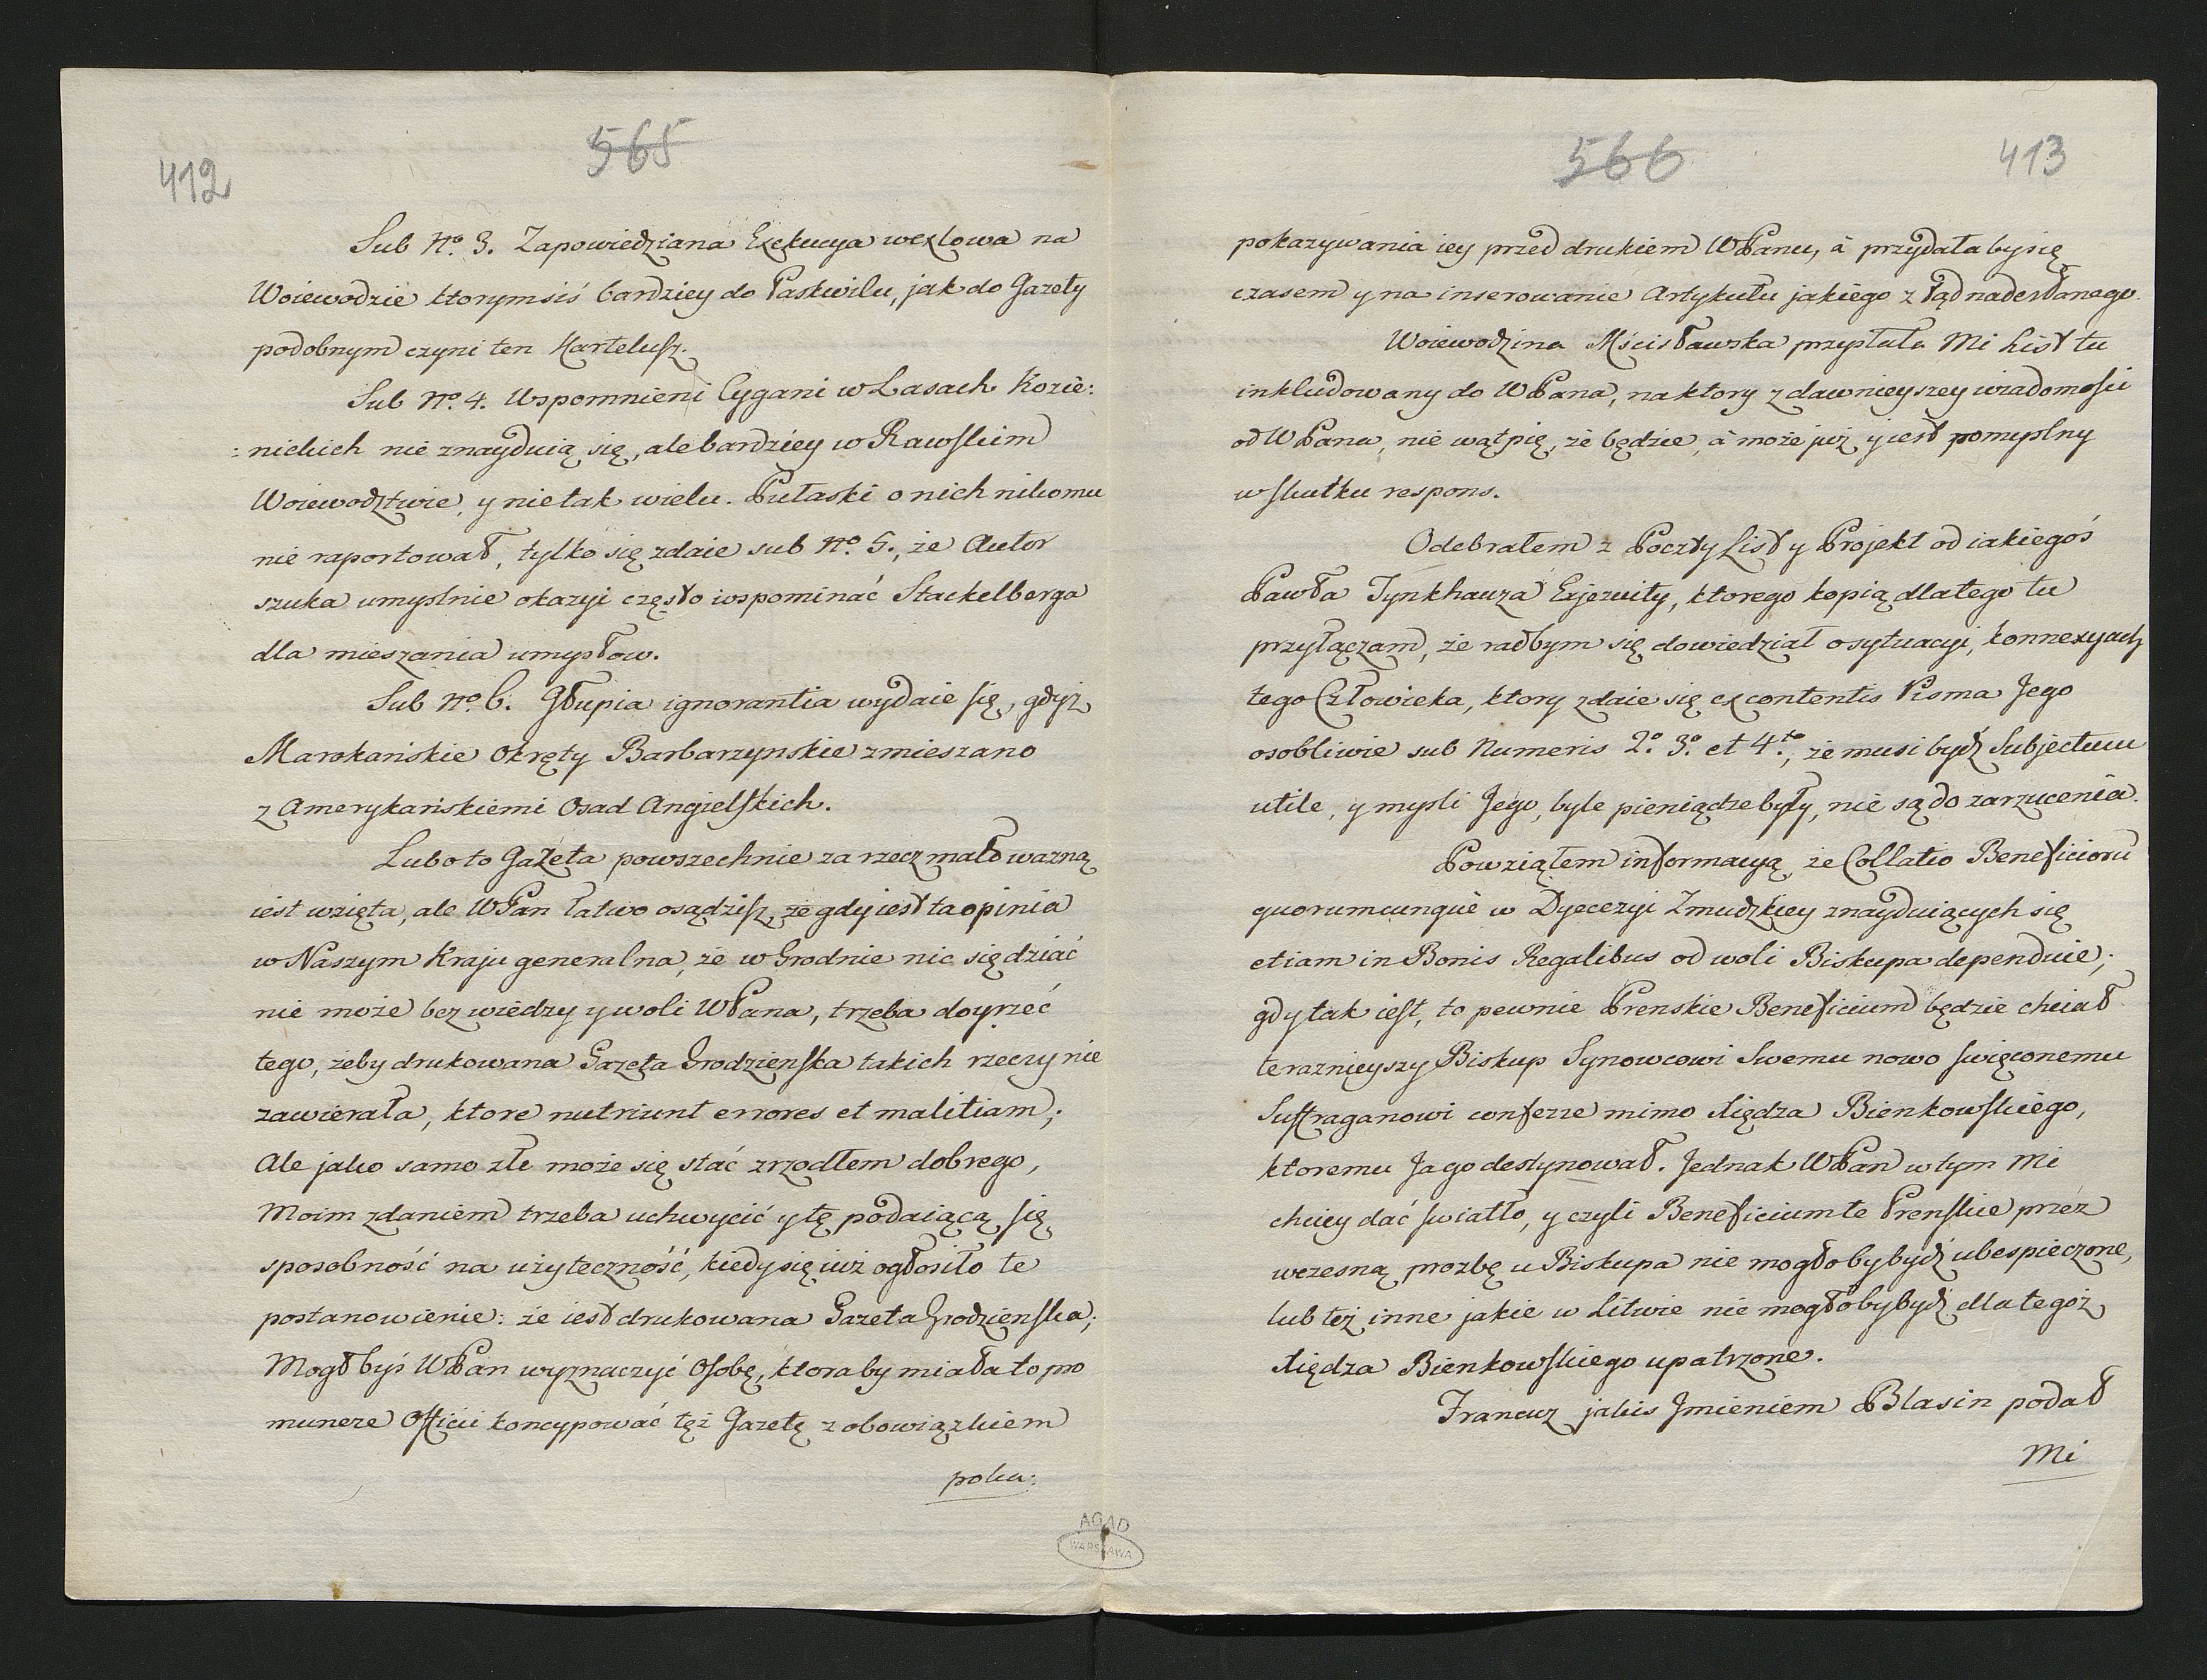 412
565
Sub No. 3. Zapowiedziana Exekucya wexlowa na
Woiewodzie ktorymsiś bardziey do Paskwilu, jak do Gazety
podobnym czyni ten Kartelusz.
Sub No. 4. Wspomnieni Cygani w Lasach Kozie:
:nickich nie znayduią się, ale bardziey w Rawskim
Woiewodztwie, y nie tak wielu. Pułaski o nich nikomu
nie raportował, tylko się zdaie sub No. 5., że Autor
szuka umyslnie okazyi często wspominać Stackelberga
dla mieszania umysłow.
Sub No. 6. Głupia ignorantia wydaie się, gdyż
Marokańskie Okręty Barbarzynskie zmieszano
z Amerykańskiemi Osad Angielskich.
Lubo to Gazeta powszechnie za rzecz mało ważną
iest wzięta, ale WPan łatwo osądzisz, że gdy iest ta opinia
w Naszym Kraju generalna, że w Grodnie nic się dziać
nie może bez wiedzy y woli WPana, trzeba doyrzeć
tego, żeby drukowana Gazeta Grodzienska takich rzeczy nie
zawierała, ktore nutriunt errores et malitiam;
Ale jako samo złe może się stać zrzodłem dobrego,
Moim zdaniem trzeba uchwycić y tę podaiącą się
sposobność na użyteczność, kiedy się iuż ogłosiło te
postanowienie: że iest drukowana Gazeta Grodzienska;
Mogłbyś WPan wyznaczyć Osobę, ktoraby miała to pro
munere Officii koncypować tęż Gazetę z obowiązkiem
poka:
566
413
pokazywania iey przed drukiem WPanu, à przydałaby się
czasem y na inserowanie Artykułu jakiego z tąd nadesłanego.
Woiewodzina Mścisławska przysłała Mi List tu
inkludowany do WPana, na ktory z dawnieyszey wiadomości
od WPana, nie wątpię, że będzie, à może już y iest pomyslny
w skutku respons.
Odebrałem z Poczty List y Projekt od iakiegoś
Pawła Tynkhauza Exjezuity, ktorego kopią dlatego tu
przyłączam, że radbym się dowiedział o sytuacyi, konnexyach
tego Człowieka, ktory zdaie się ex contentis Pisma Jego
osobliwie sub Numeris 2o. 3o. et 4to., że musi bydź Subjectum
utile, y mysli Jego, byle pieniądze były, nie są do zarzucenia.
Powziąłem informacyą, że Collatio Beneficiorũ
quorumcunque w Dyecezyi Zmudzkiey znayduiących się
etiam in Bonis Regalibus od woli Biskupa dependuie;
gdy tak iest, to pewnie Prenskie Beneficium będzie chciał
teraznieyszy Biskup Synowcowi Swemu nowo swięconemu
Suffraganowi conferre mimo Xiędza Bienkowskiego,
ktoremu Ja go destynował. Jednak WPan w tym Mi
chciey dać swiatło, y czyli Beneficium te Prenskie przez
wczesną prozbę u Biskupa nie mogłoby bydź ubespieczone,
lub też inne jakie w Litwie nie mogłoby bydź dla tegoż
Xiędza Bienkowskiego upatrzone.
Francuz jakis Jmieniem Blasin podał
Mi
AGAD
WARSZAWA